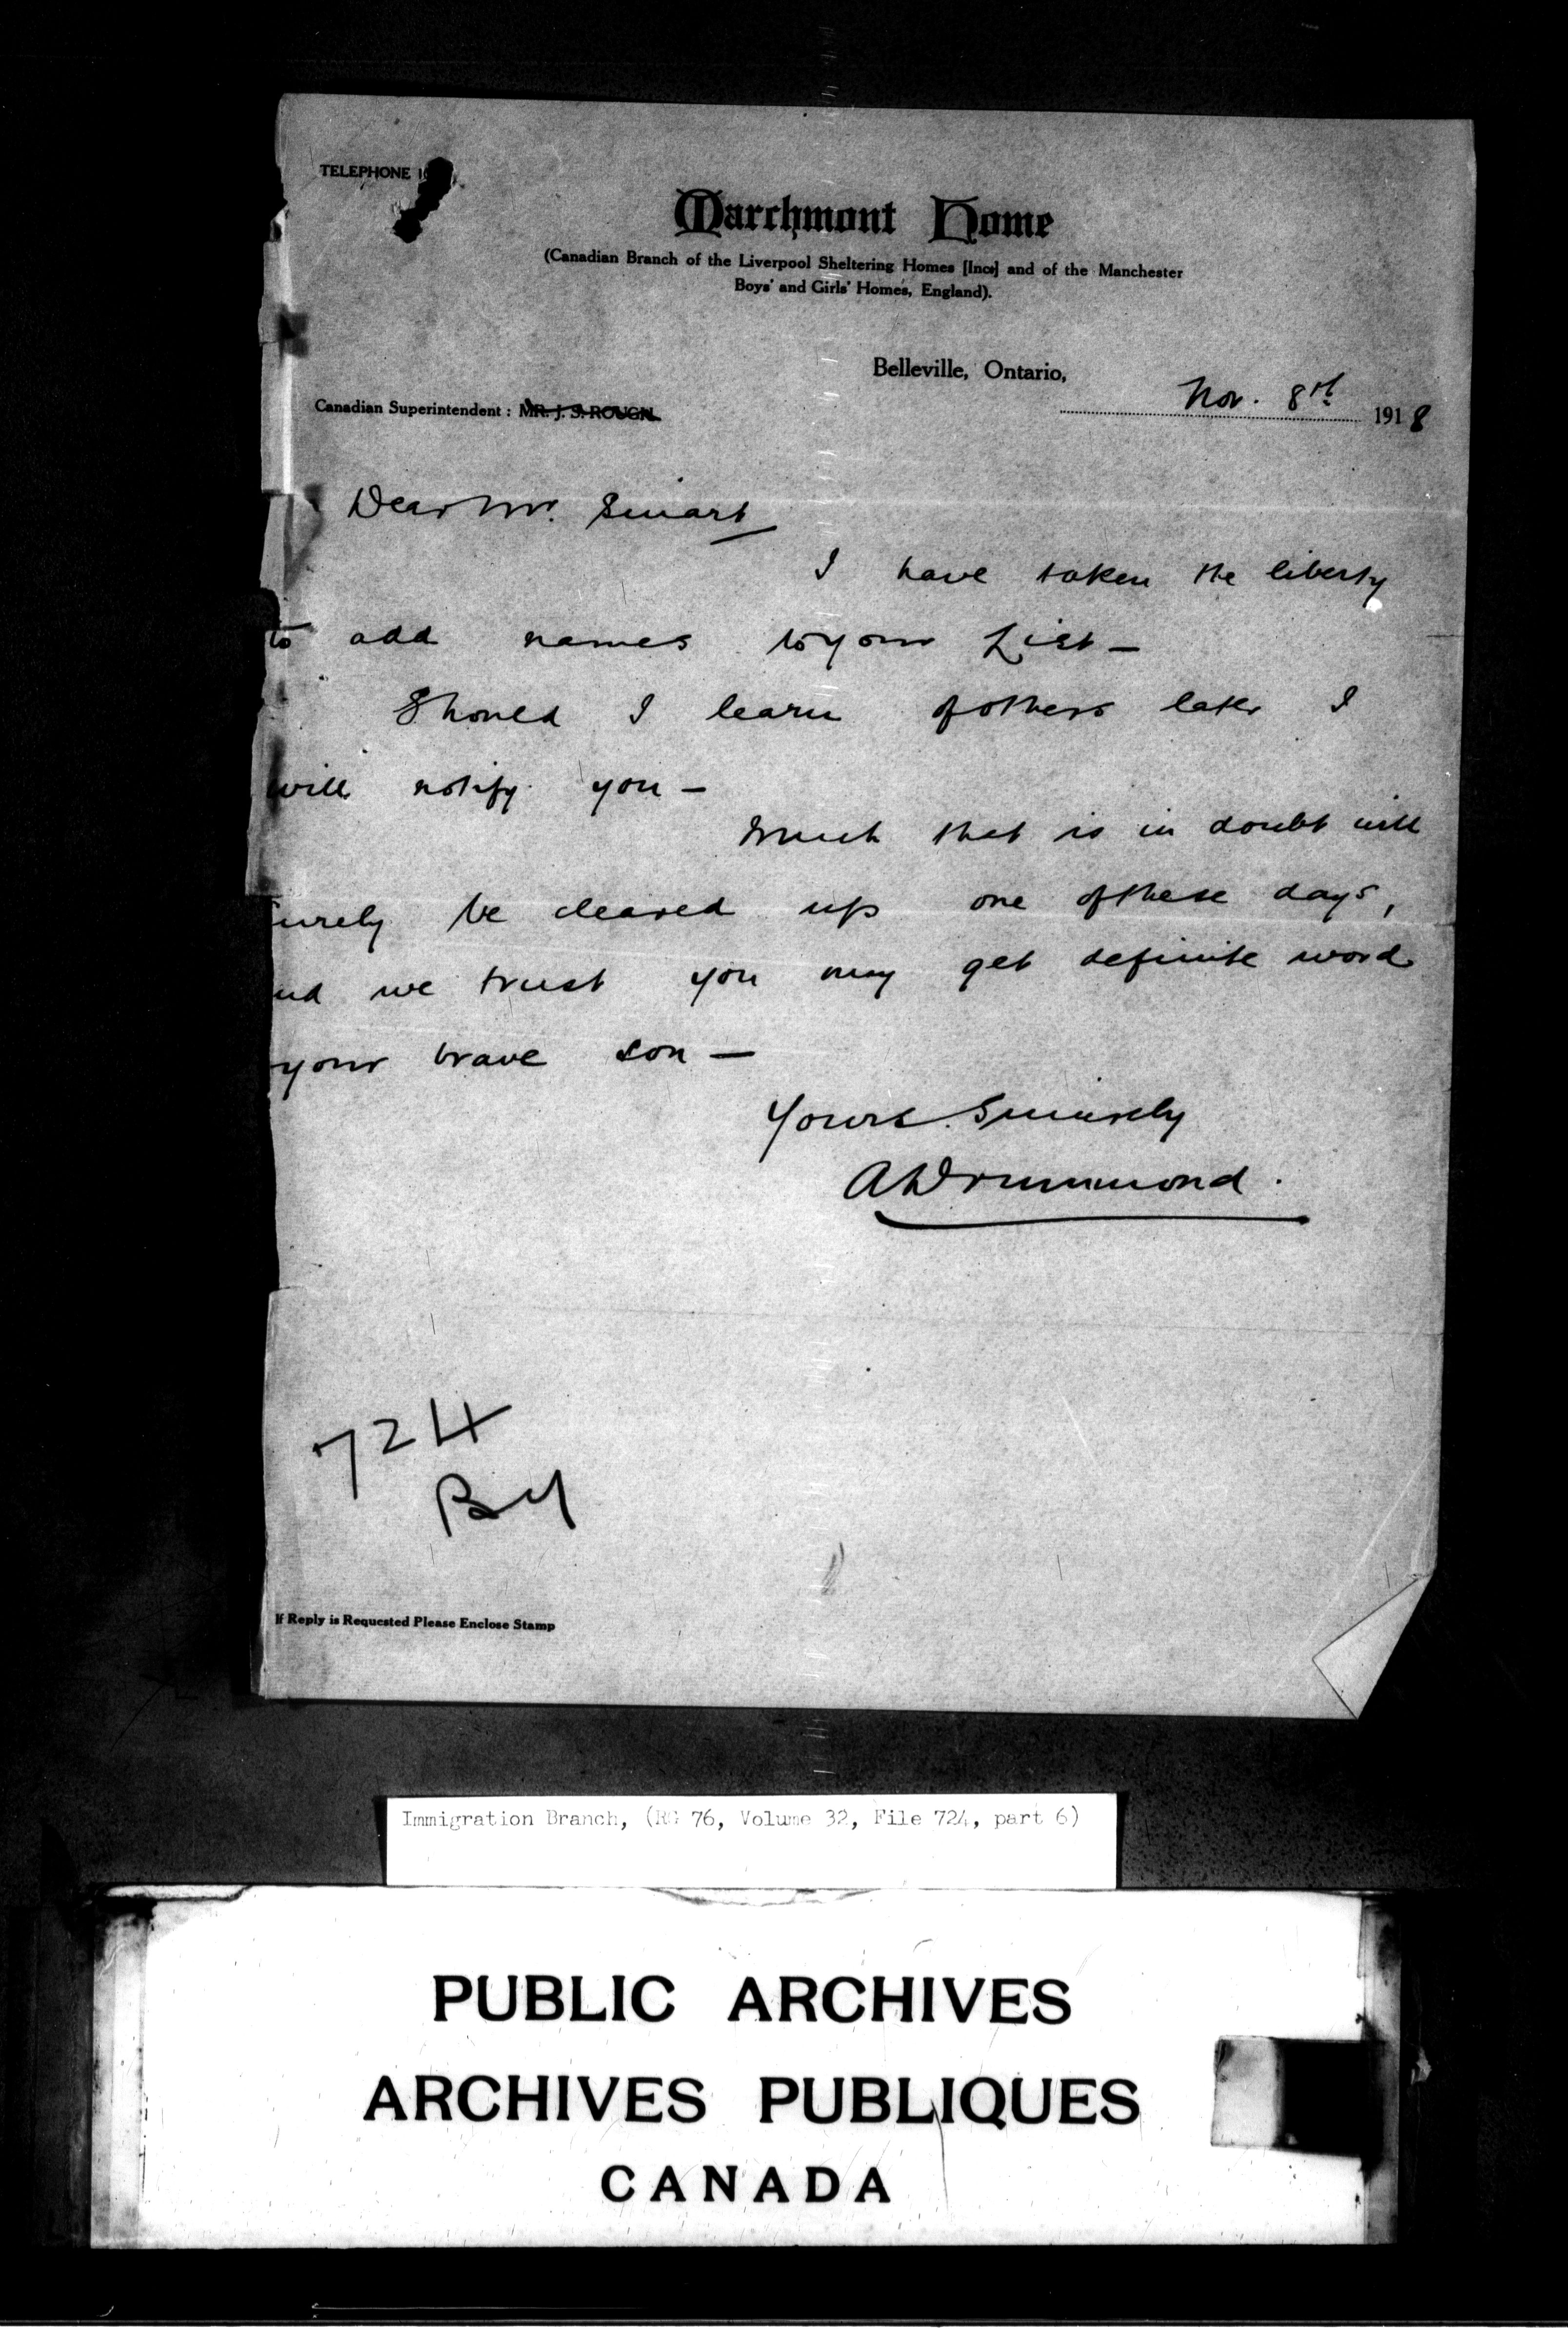 TELEPHONE
Marchmont Home
(Canadian Branch of the Liverpool Sheltering Homes [Inc.] and of the Manchester
Boys' and Girls' Homes, England).
Belleville, Ontario,
Nov. 8th 1918
Canadian Superintendent : MR. J. S. ROUGH.
Dear Mr. Smart
I have taken the liberty
to add names to your List –
Should I learn of others later I
will notify you –
Much that is in doubt will
urely be cleared up one of these days,
nd we trust you may get definite word
your brave son –
Yours Sincerely
A Drummond.
724
If Reply is Requested Please Enclose Stamp
Immigration Branch, (RG 76, Volume 32, File 724, part 6)
PUBLIC ARCHIVES
ARCHIVES PUBLIQUES
CANADA